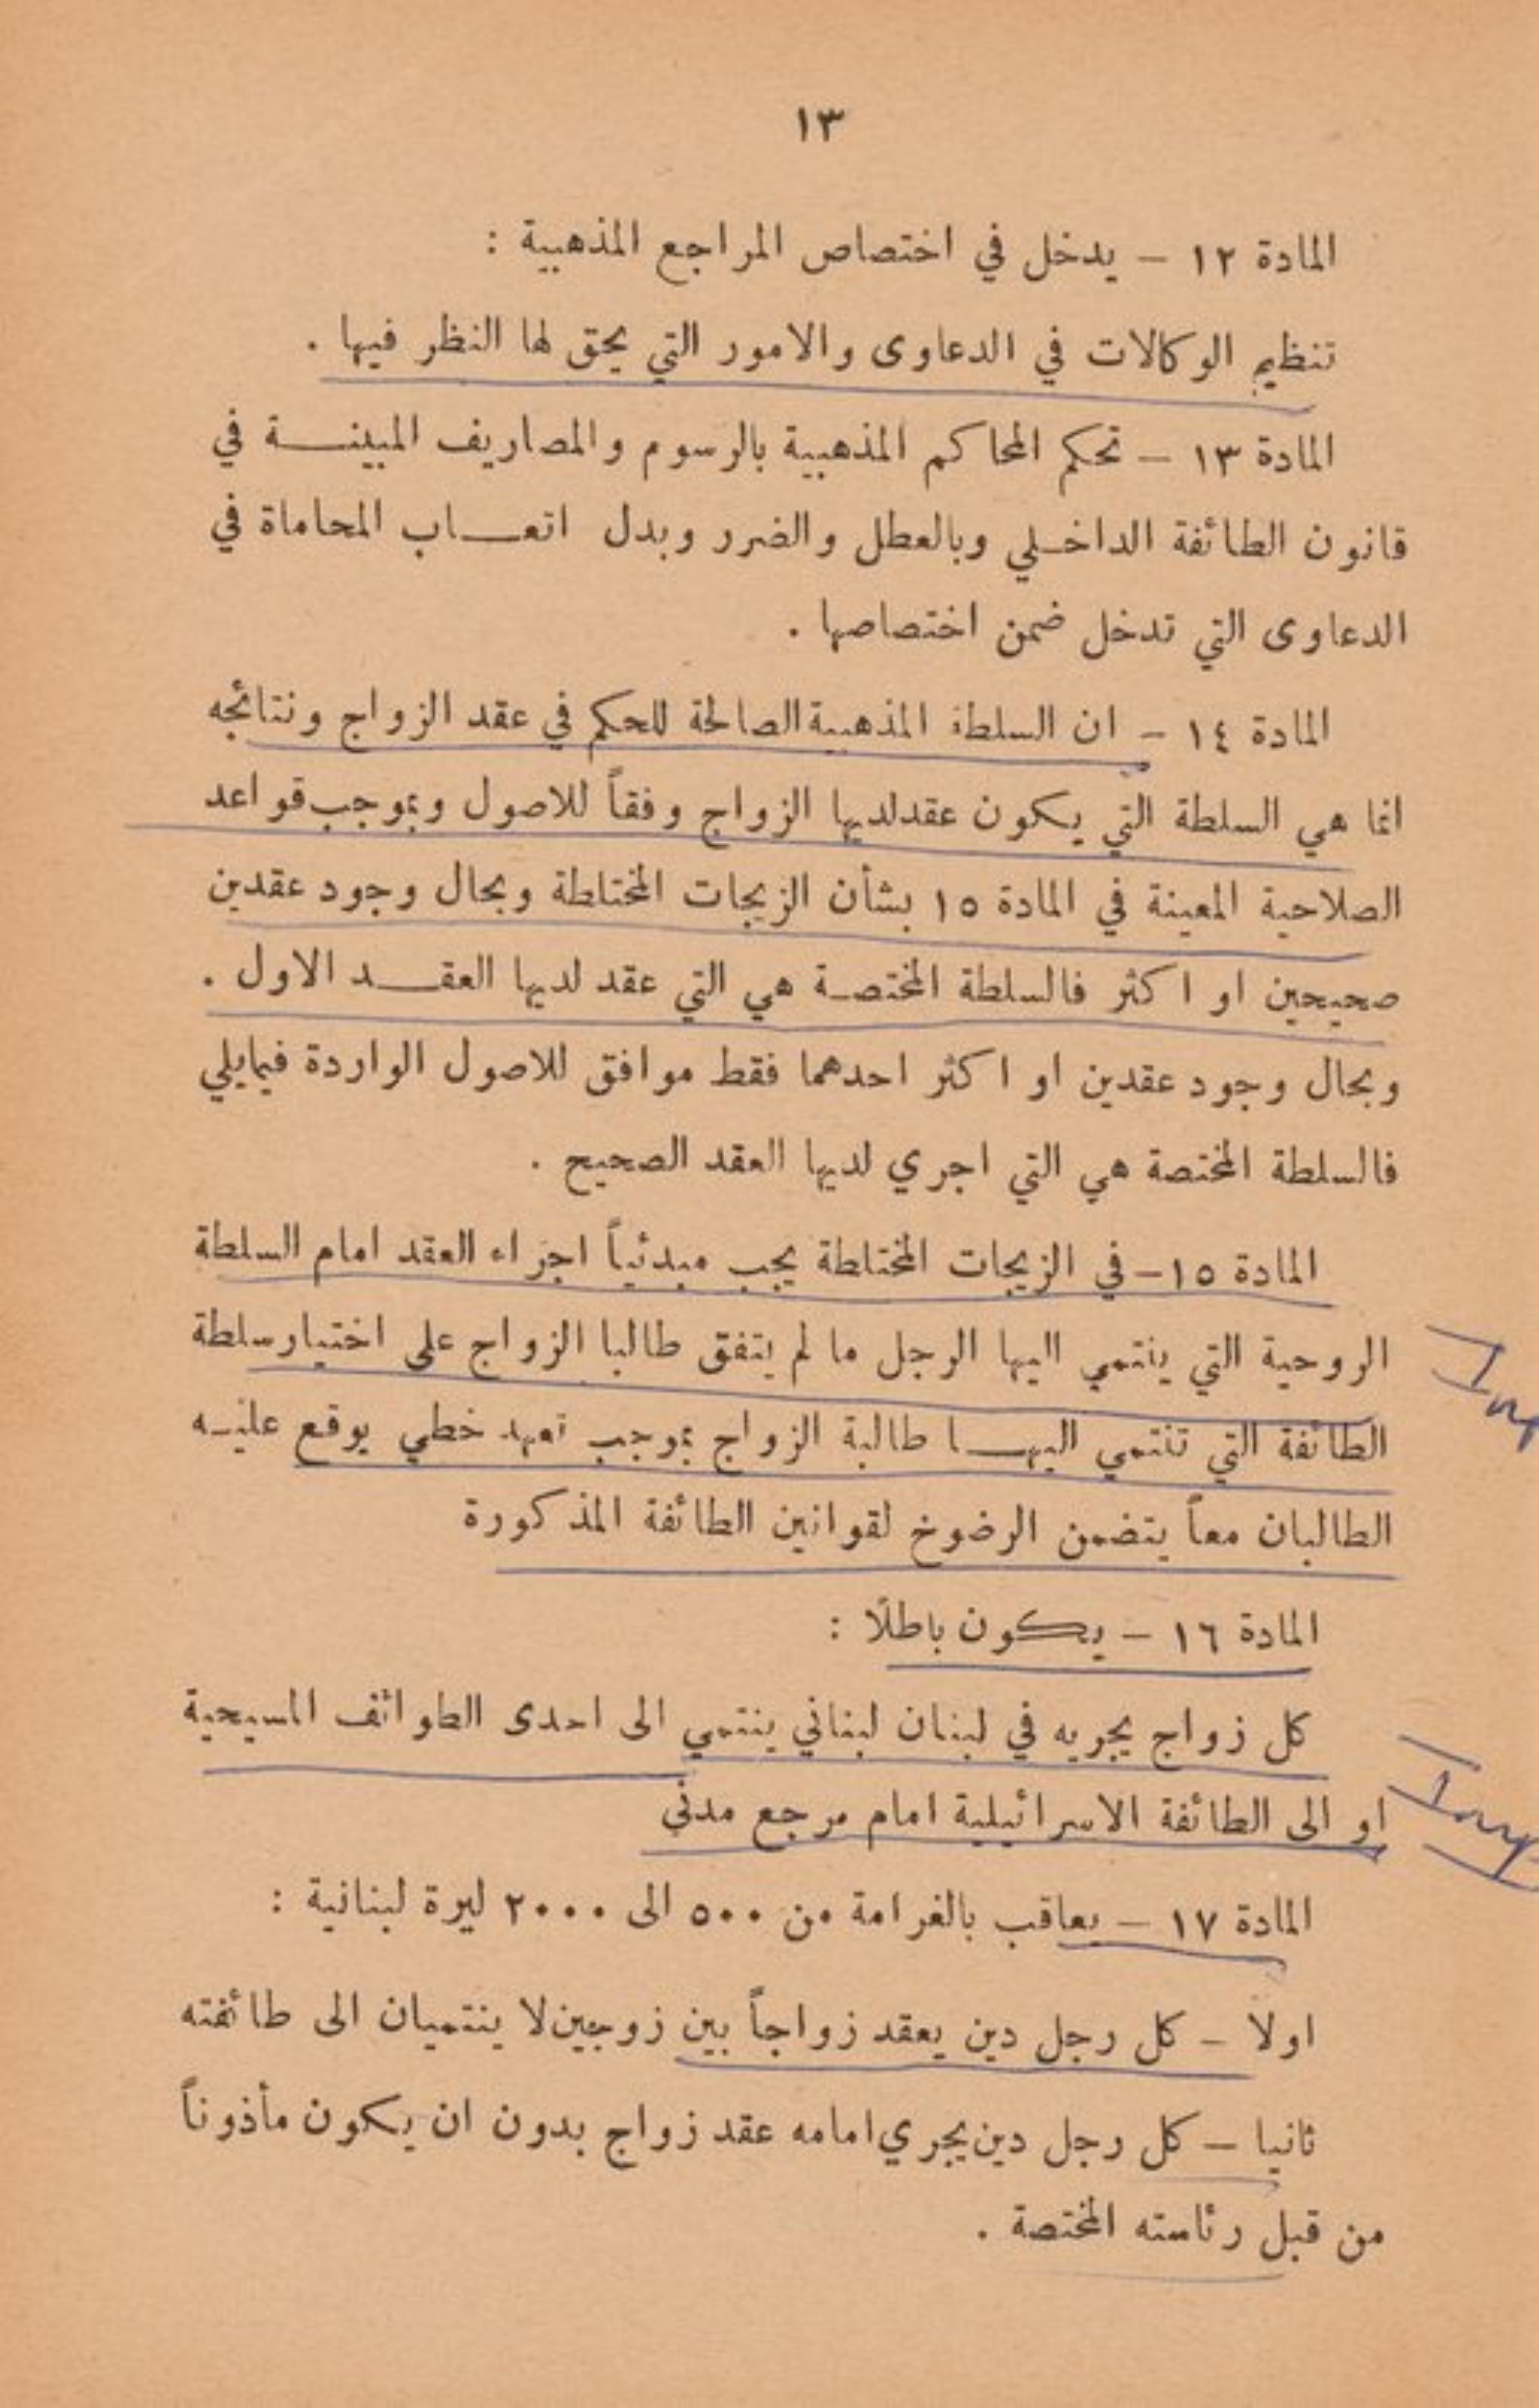 ١٣
المادة ١٢ – يدخل في اختصاص المراجع المذهبية :
تنظيم الوكالات في الدعاوى والامور التي يحق لها النظر فيها .
المادة ١٣ – تحكم المحاكم المذهبية بالرسوم والمصاريف المبينة في
قانون الطائفة الداخلي وبالعطل والضرر وبدل اتعاب المحاماة في
الدعاوى التي تدخل ضمن اختصاصها .
المادة ١٤ – ان السلطة المذهبية الصالحة للحكم في عقد الزواج ونتائجه
انما هي السلطة التي يكون عقد لديها الزواج وفقاً للاصول وبموجب قواعد
الصلاحية المعينة في المادة ١٥ بشأن الزيجات المختلطة وبحال وجود عقدين
صحيحين او اكثر فالسلطة المختصة هي التي عقد لديها العقد الاول .
وبحال وجود عقدين او اكثر احدهما فقط موافق للاصول الواردة فيمايلي
فالسلطة المختصة هي التي اجري لديها العقد الصحيح .
المادة ١٥ – في الزيجات المختلطة يجب مبدئياً اجراء العقد امام السلطة
الروحية التي ينتمي اليها الرجل ما لم يتفق طالبا الزواج على اختيار سلطة
الطائفة التي تنتمي اليها طالبة الزواج بموجب تعهد خطي يوقع عليه
الطالبان معاً يتضمن الرضوخ لقوانين الطائفة المذكورة
المادة ١٦ – يكون باطلًا :
كل زواج يجريه في لبنان لبناني ينتمي الى احدى الطوائف المسيحية
او الى الطائفة الاسرائيلية امام مرجع مدني
المادة ١٧ – يعاقب بالغرامة من ٥٠٠ الى ٢٠٠٠ ليرة لبنانية :
اولا – كل رجل دين يعقد زواجاً بين زوجين لا ينتميان الى طائفته
ثانيا – كل رجل دين يجري امامه عقد زواج بدون ان يكون مأذوناً
من قبل رئاسته المختصة .